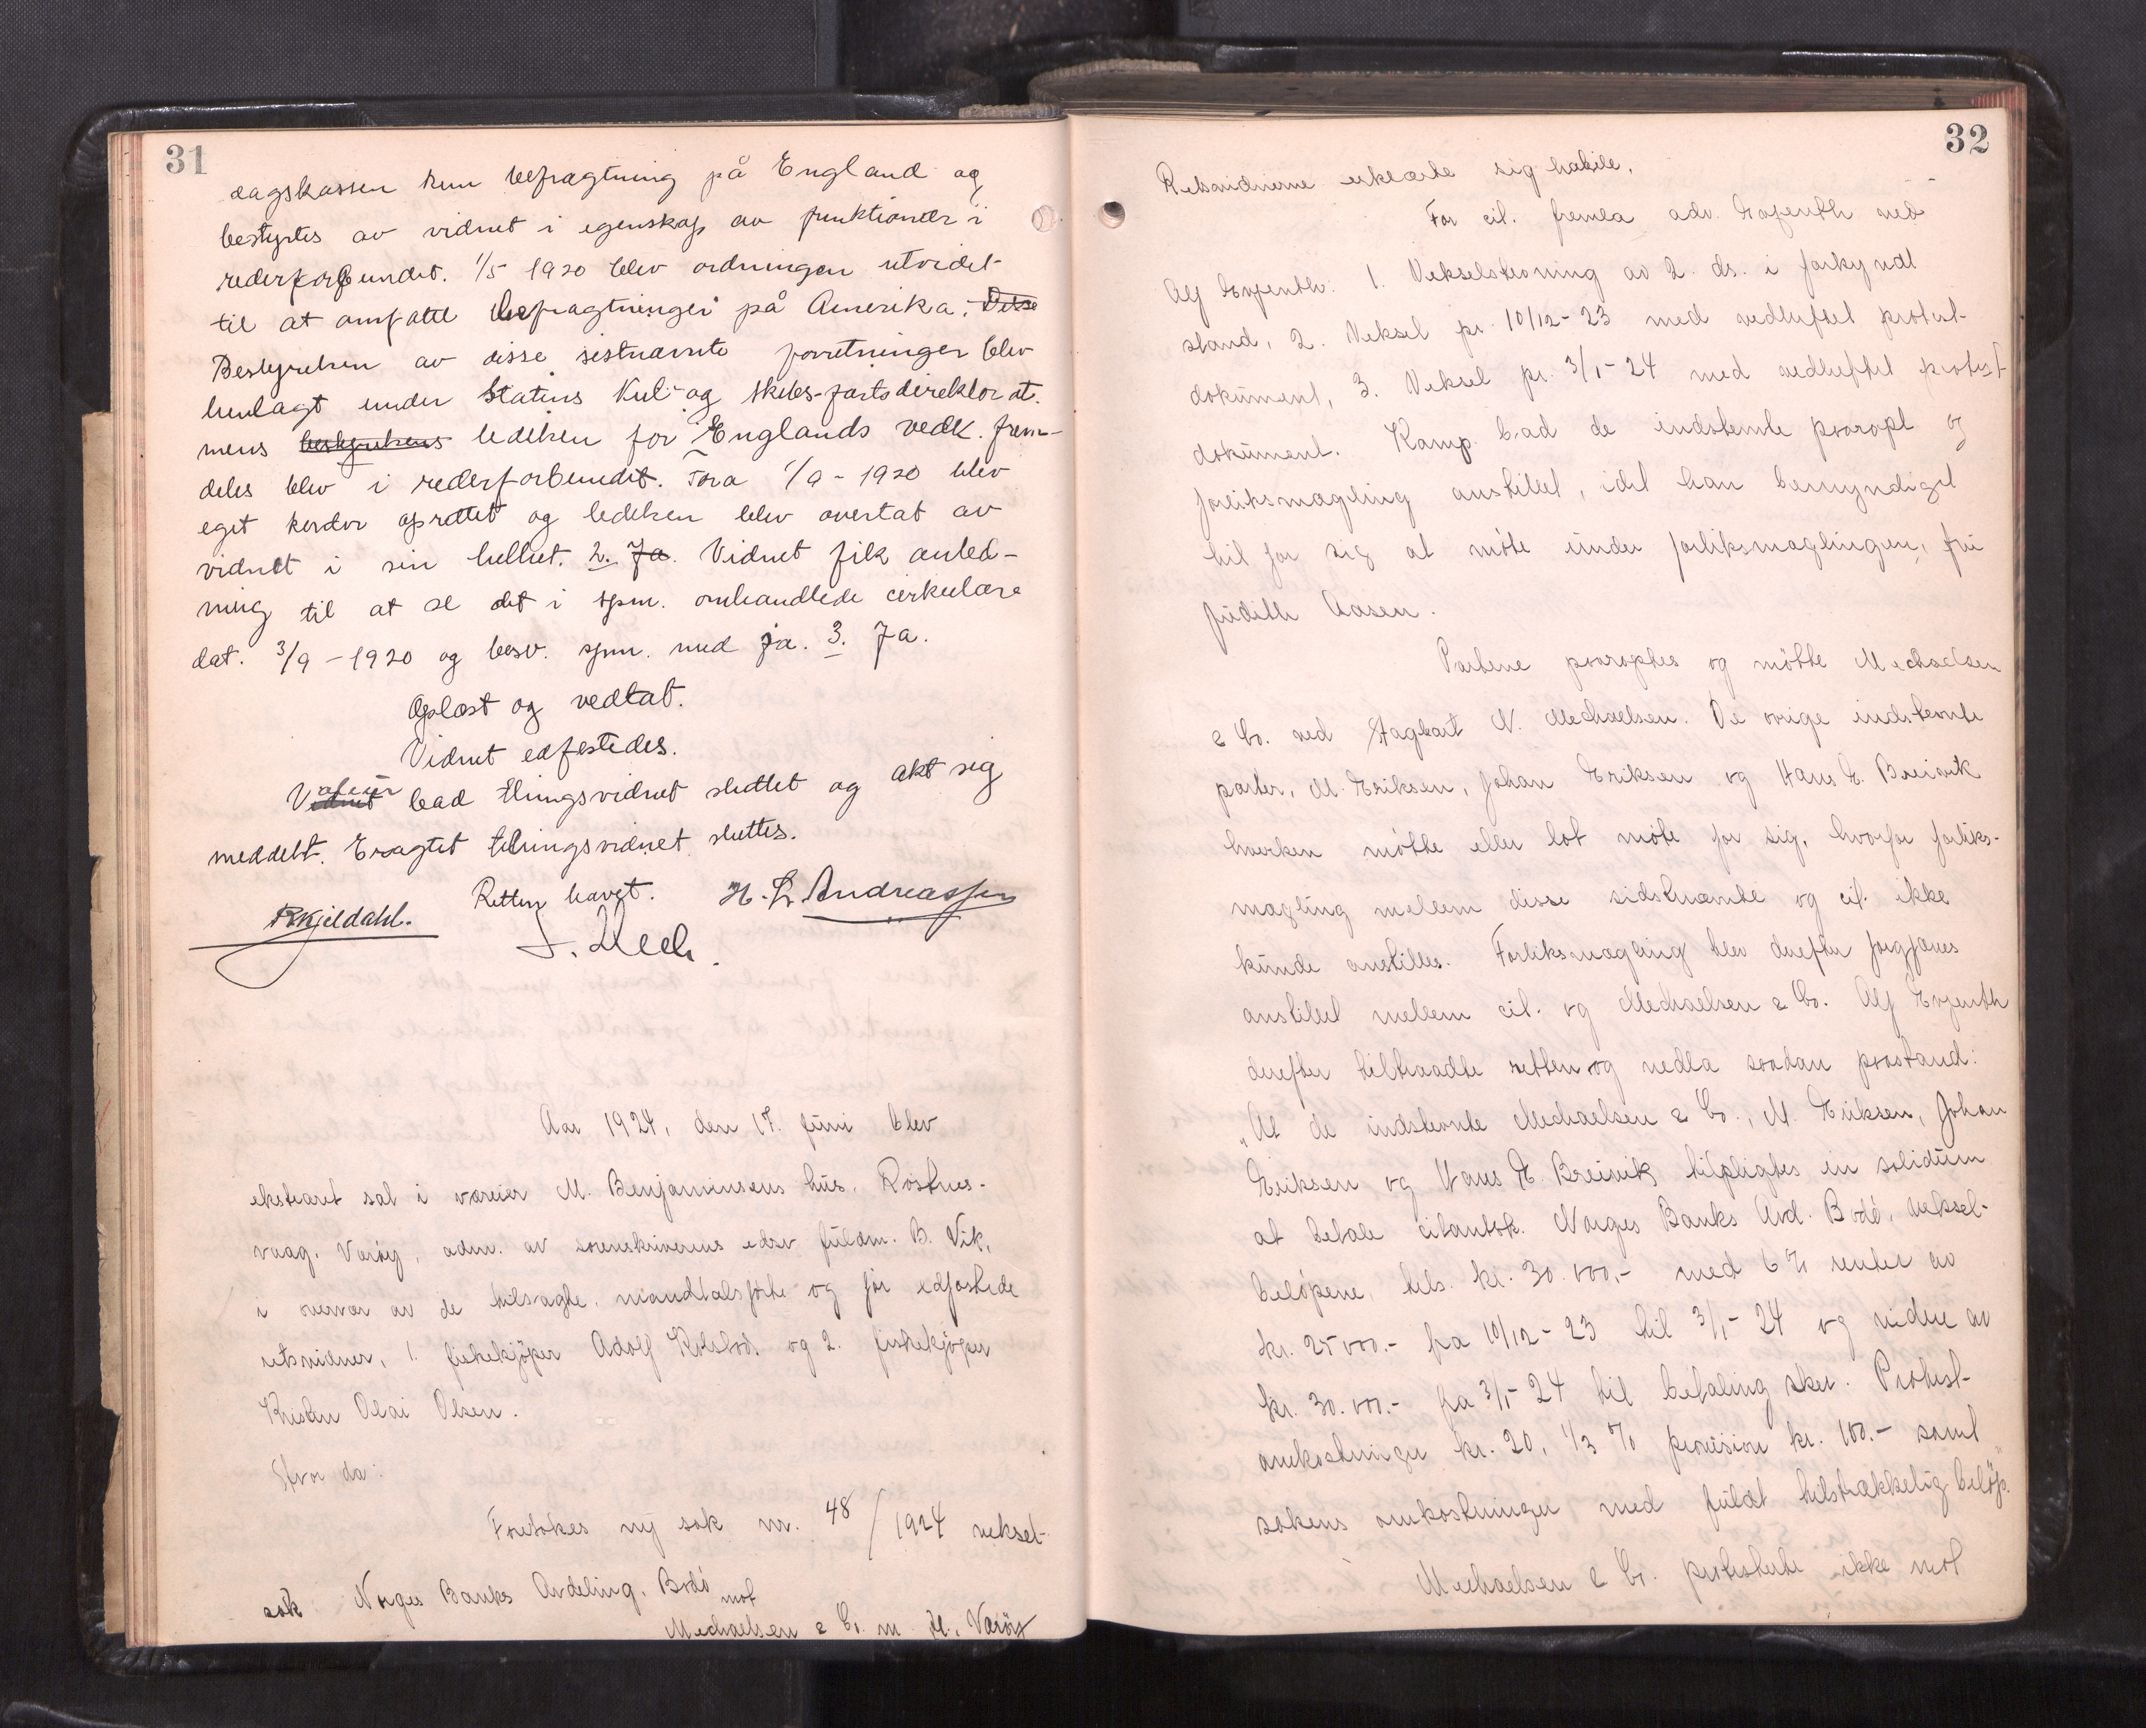 31
dagskassen kun befragtning på England og
bestyrtes av vidnet i egenskap av funktionær i
rederforbundet. 1/5 1920 blev ordningen utvidet
til at omfatte befragtninger på Amerika. Disse
Bestyrelsen av disse sistnævnte forretninger blev
henlagt under Statens Kul- og Skibs-fartsdirektorat.
mens bestyrelsens ledelsen for Englands vedk. frem-
deles blev i rederforbundet. Fra 1/9 - 1920 blev
eget kontor oprettet og ledelsen blev overtat av
vidnet i sin helhet. 2. Ja. Vidnet fik anled-
ning til at se det i spm. omhandlede cirkulære
dat. 3/9 - 1920 og besv. spm. med ja. 3. Ja.
Oplæst og vedtat.
Vidnet edfestedes.
Vidnet bad thingsvidnet sluttet og akt sig
meddelt. Eragtet thingsvidnet sluttes.
Retten hævet. H. L. Andreassen
R Kjeldahl.
Aar 1924, den 17. juni blev
ekstraret sat i væreier M. Benjaminsens hus, Røstnes-
vaag, Værøy, adm. av sorenskriverens edsv. fuldm. B. Vik,
i overvær av de tilsagte, mandtalsførte og før edfæstede
retsvidner, 1. fiskekjøper Adolf og 2. fiskekjøper
Kristen Olai Olsen.
Hvor da:
Foretokes ny sak nr. 48/1924 veksel-
sak Norges Banks Avdeling, Bodø
mot
Mechaelsen & Co. m. fl., Værøy
32
Retsvidnerne erklærte sig habile.
For cit. fremla adv. Evjenth ved
Alf Evjenth. 1. Vekselstevning av 2. ds. i forkyndt
stand, 2. Veksel pr. 10/12-23 med vedheftet protest-
dokument, 3. Veksel pr. 3/1-24 med vedheftet protest
dokument. Komp. bad de indstevnte paaropt og
forliksmægling anstillet, idet han bemyndiget
til for sig at møte under forliksmæglingen, fru
Judith Aasen.
Partene paaroptes og møtte Mechaelsen
& Co. ved Hagbart N. Mechaelsen. De øvrige indstevnte
parter, M. Eriksen, Johan Eriksen og Hans E. Breivik
hverken møtte eller lot møte for sig, hvorfor forliks-
mægling mellem disse sidstnævnte og cit. ikke
kunde anstilles. Forliksmægling blev derefter forgjæves
anstillet mellem cit. og Mechaelsen & Co. Alf Evjenth
derefter tiltraadte retten og nedla saadan paastand:
"At de indstevnte Mechaelsen & Co., M. Eriksen, Johan
Eriksen og Hans E. Breivik tilpligtes in solidum
at betale citantsk. Norges Banks Avd. Bodø, veksel-
beløpene, tils. kr. 30.000,- med 6 % renter av
kr. 25000.- fra 10/12-23 til 3/1-24 og videre av
kr. 30.000.- fra 3/1-24 til betaling sker. Protest-
omkostninger kr. 20, 1/3 % provision kr. 100.- samt
sakens omkostninger med fuldt tilstrækkelig beløp."
Mechaelsen & Co. protesterte ikke mot